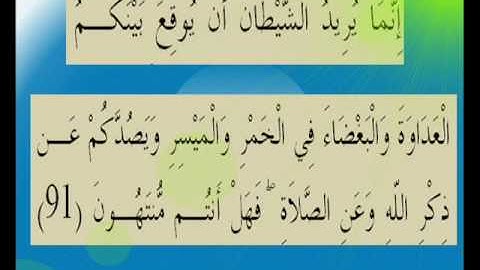 إِنَّمَا يُرِيدُ الشَّيْطَانُ أَن يُوقِعَ بَيْنَكُمُ
الْعَدَاوَةَ وَالْبَغْضَاءَ فِي الْخَمْرِ وَالْمَيْسِرِ وَيَصُدَّكُمْ عَن
ذِكْرِ اللَّهِ وَعَنِ الصَّلَاةِ ۖ فَهَلْ أَنتُم مُّنتَهُونَ (91)